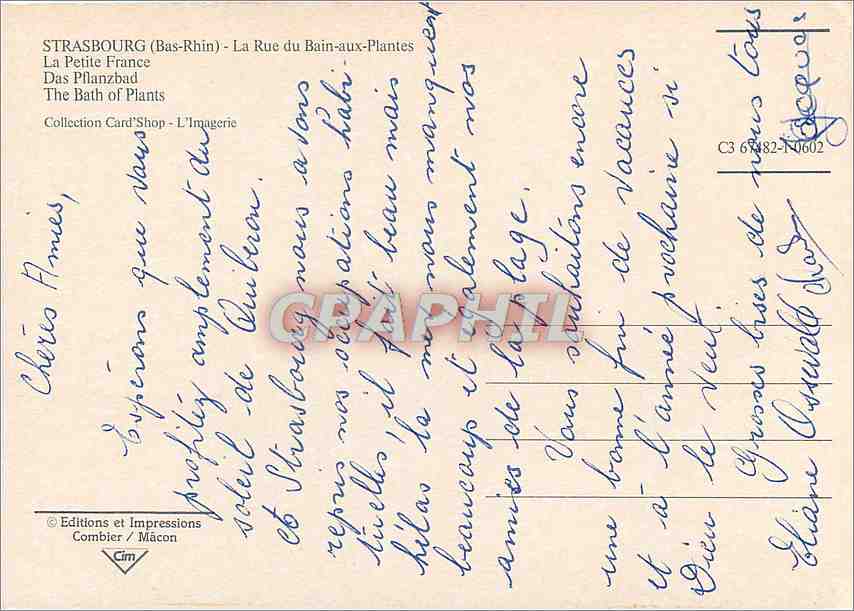 STRASBOURG (Bas-Rhin) - La Rue du Bain-aux-Plantes
La Petite France
Das Pflanzbad
The Bath of Plants
Collection Card'Shop - L'Imagerie
C3 67482-1-0602
© Editions et Impressions
Combier / Mâcon
Cim
GRAPHIL
Chères Amies,
Espérons que vous
profitéz amplement du
soleil de Quiberon.
et Strasbourg nous avons
repris nos occupations habi-
tuelles, il fait beau mais
hélas la mer nous manquent
beaucoup et également nos
amies de la plage.
Vous souhaitons encore
une bonne fin de vacances
et à l'année prochaine si
Dieu le veut.
Grosses bises de nous tous
Eliane
Jacques